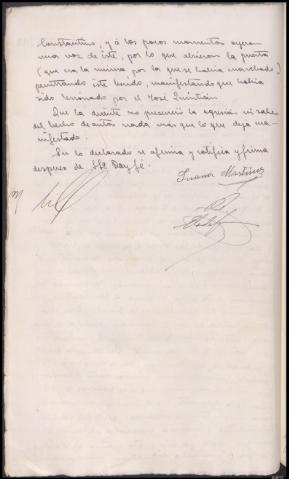 Constantino, y á los pocos momentos oyeron
unas voz de éste, por lo que abrieron la puerta
(que era la misma, por la que se había marchado)
penetrando éste herido, manifestando que había
sido lesionado por el José Quintián
Que la dicente no presenció la agresión ni sabe
del hecho de autos nada más que lo que deja ma-
nifestado.
En lo declarado se afirma y ratifica y firma
después de S.Sª. Doy fé.
Juana Martinez